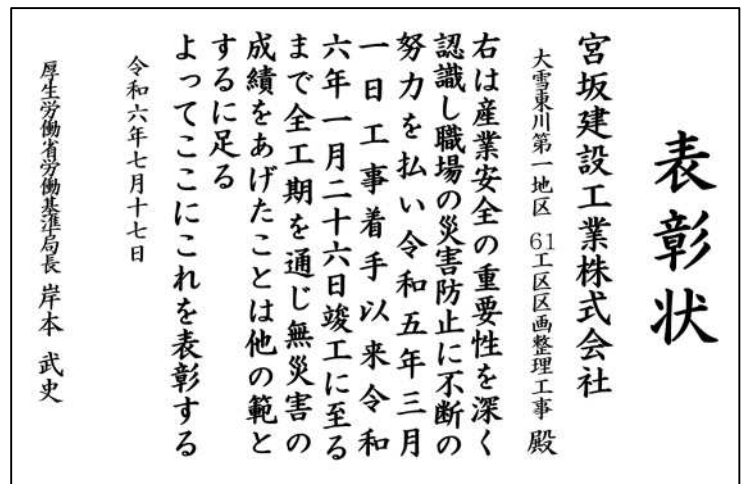 表彰状
宮坂建設工業株式会社
大雪東川第一地区 61工区区画整理工事 殿
右は産業安全の重要性を深く
認識し職場の災害防止に不断の
努力を払い令和五年三月
一日工事着手以来令和
六年一月二十六日竣工に至る
まで全工期を通じ無災害の
成績をあげたことは他の範と
するに足る
よってここにこれを表彰する
令和六年七月十七日
厚生労働省労働基準局長 岸本 武史